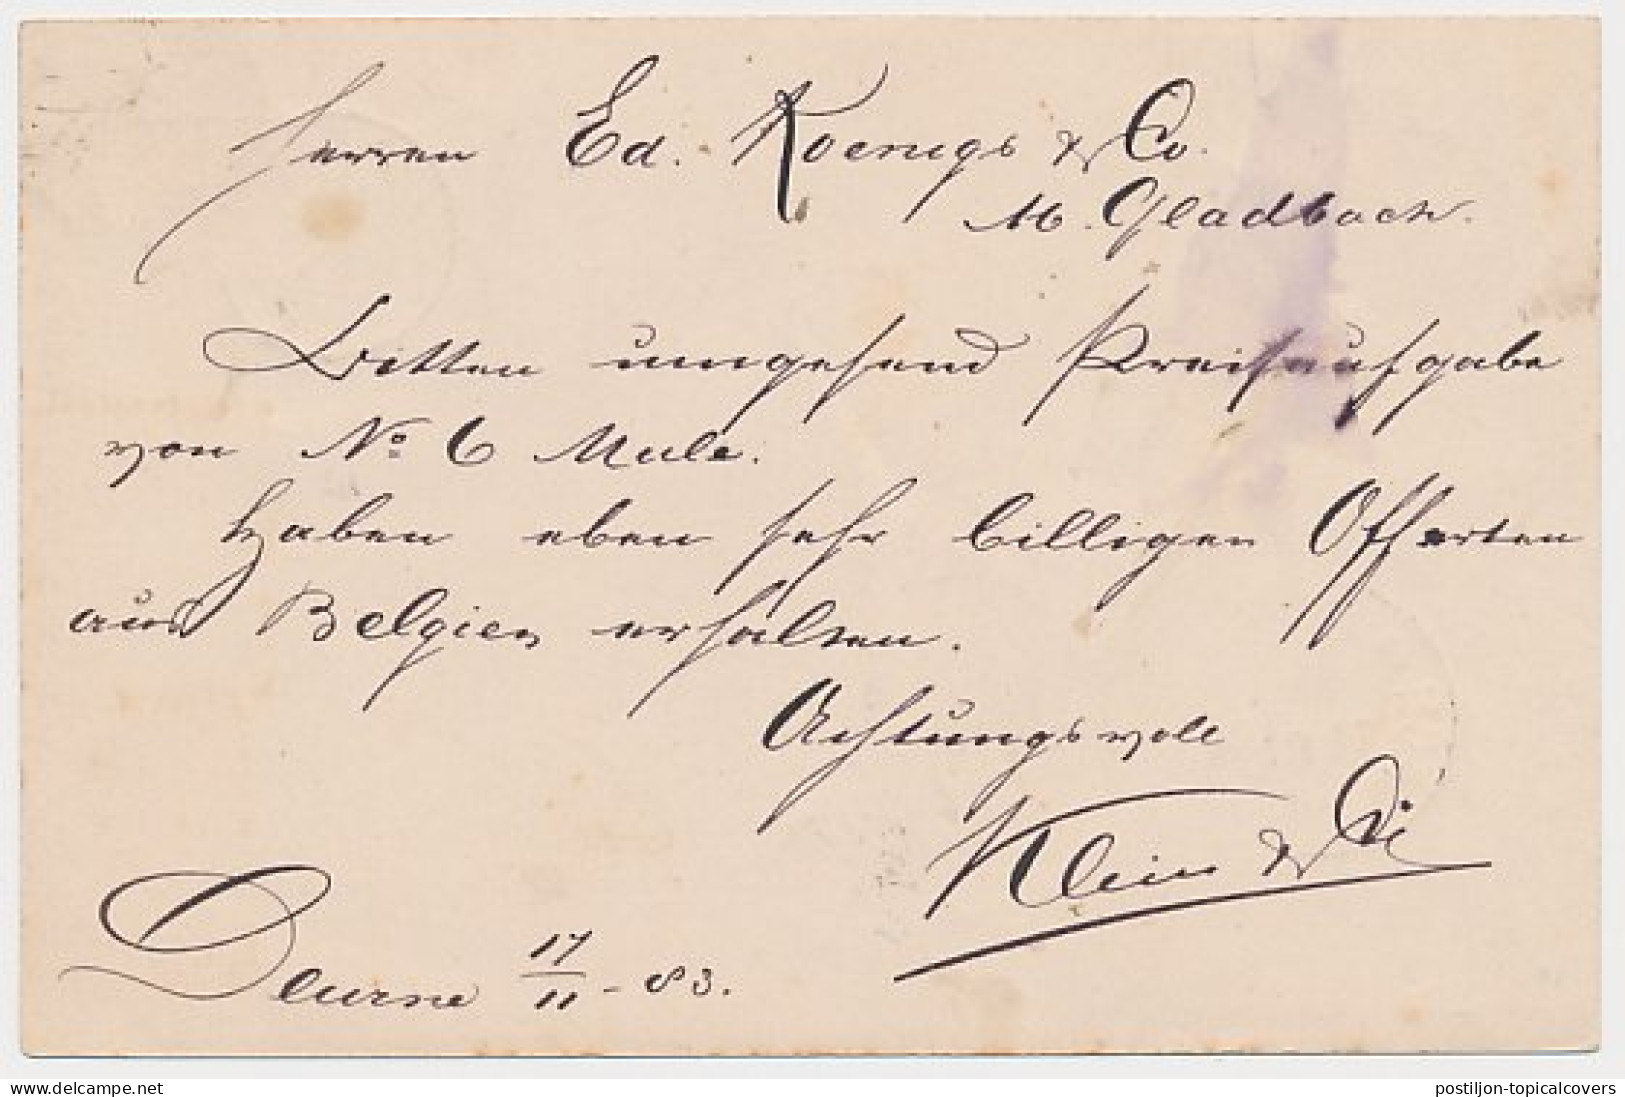 Herren Ed. Koenigs & Co.
M. Gladbach.
Bitten umgehend Preisaufgabe
von No. 6 Mule.
Haben eben sehr billigen Offerten
aus Belgien erhalten.
Achtungsvoll
Klein & Ci
Deurne 17/11 - 83.
the-king-collections.delcampe.net
postiljon-topicalcovers